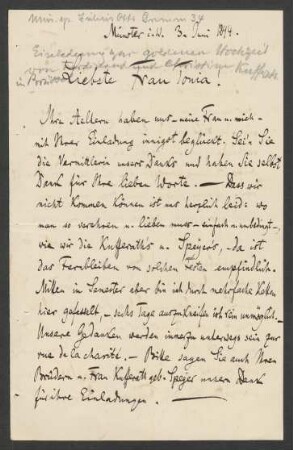 Münster i.W. 3. Juni 1894.
Einladung zur goldenen Hochzeit
von und Kufferath
u. Brüder
Liebste Frau Tonia!
Ihre Aeltern haben uns – meine Frau u. mich –
mit Ihrer Einladung innigst beglückt. Sei'n Sie
die Vermittlerin unsers Danks und haben Sie selbst
Dank für Ihre lieben Worte. — Dass wir
nicht kommen können ist uns herzlich leid: wo
man so verehren u. lieben muss – einfach u. unbedingt –,
wie wir die Kufferath's u. Speyer's, – da ist
das Fernbleiben von solchen Festen empfindlich.
Mitten im Semester aber bin ich durch mehrfache Ketten
hier gefesselt, – sechs Tage auszukneifen ist rein unmöglich. –
Unsere Gedanken werden immerzu unterwegs sein zur
rue de la charité. – Bitte sagen Sie auch Ihren
Brüdern u. Frau Kufferath geb. Speyer unsern Dank
für ihre Einladungen. –